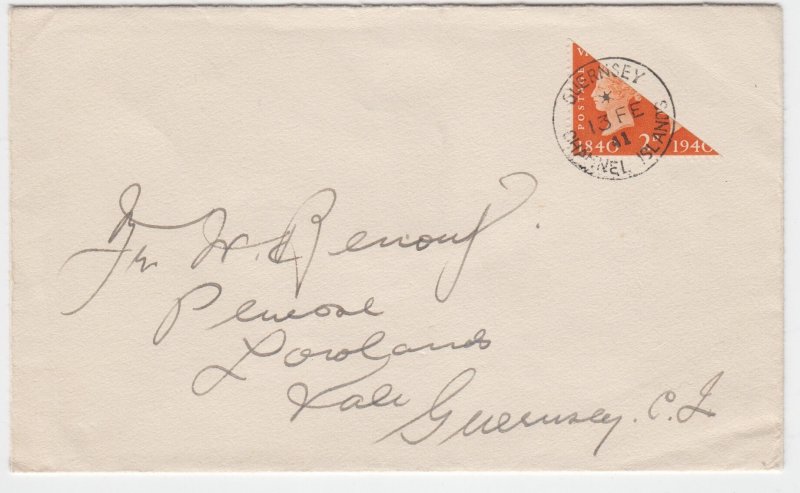 POSTAGE
GUERNSEY
13 FE
41
CHANNEL ISLANDS
1840 2 1940
W. Renouf
Penrose
Lowlands
Vale Guernsey. C. I.